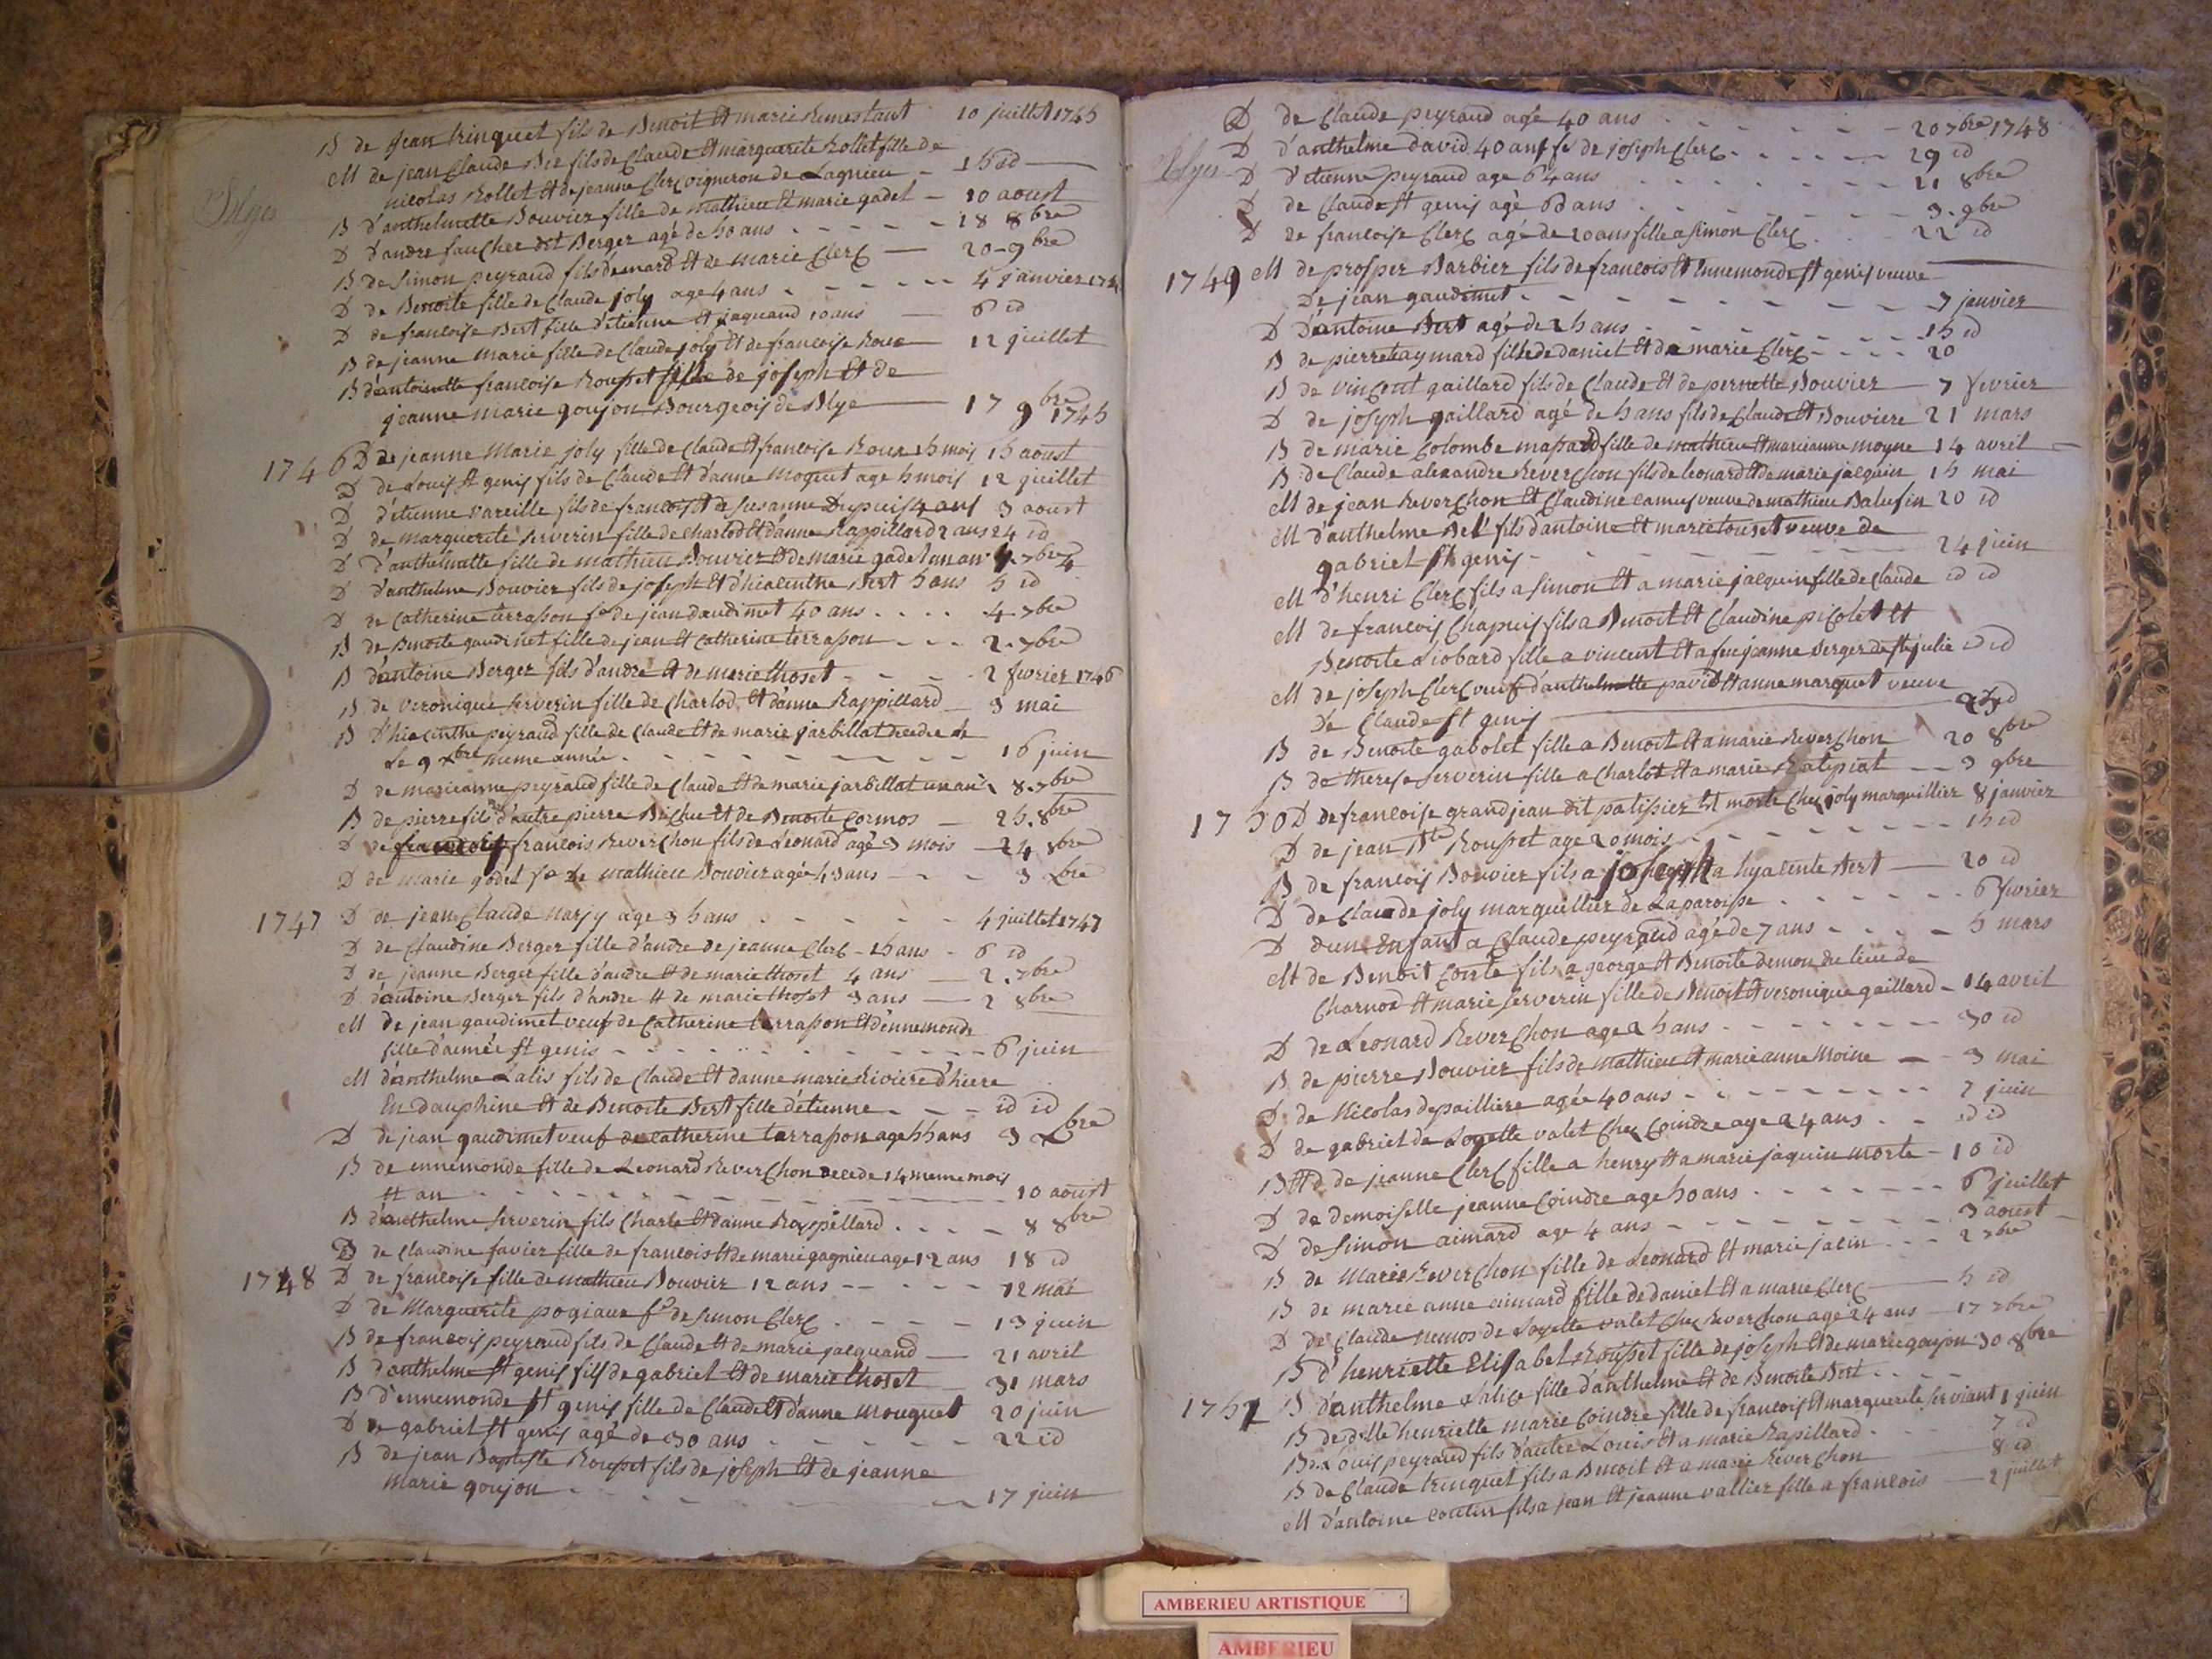 Blyes
B de Jean trinquet fils de Benoit et marie Runestant 10 juillet 1745
M de jean Claude Bie fils de Claude et marguerite Rollet fille de
nicolas Rollet et de jeanne Clerc vigneron de Lagnieu - 15 id
B d'anthelmette Bouvier fille de mathieu et marie gadel - 10 aoust
D d'andre faucher dit Berger agé de 50 ans - - - - - 18 8bre
B de Simon peyraud fils d'emard et de marie Clerc - 20 - 9bre
D de Benoite fille de Claude joly age 4 ans - - - - - - 4 janvier
D de francoise Bert fille d'etienne et jaquand 10 ans - 6 id
B de jeanne marie fille de Claude joly et de francoise Roux - 12 juillet
B d'antoinette francoise Rousset fille de joseph et de
jeanne marie goujon Bourgeois de Blye - 17 9bre 1745
1746 D de jeanne Marie joly fille de Claude et francoise Roux 5 mois 15 aoust
D de Louis st genis fils de Claude et d'anne Moguet age 5 mois 12 juillet
D d'étienne vareille fils de francois et de susanne Dupuis 4 ans 3 aoust
D de marguerite serverin fille de Charlod et d'anne Rappillard 2 ans 24 id
D d'anthelmette fille de mathieu Bouvier et de marie gadel un an 4 7bre
D d'anthelme Bouvier fils de joseph et d'hiacinthe Bert 5 ans 5 id
D de Catherine terrasson fe de jean daudimet 40 ans . . . . 4 7bre
B de Benoite gaudinet fille de jean et Catherine terrasson - - - 2 7bre
B d'antoine Berger fils d'andre et de marie thoset - - - - 2 fevrier 1746
B de veronique serverin fille de Charlod et d'anne Rappillard - 3 mai
B d'hiacinthe peyraud fille de Claude et de marie jarbillat
Le 9 xbre meme année - - - - - - - - 16 juin
D de marieanne peyraud fille de Claude et de marie jarbillat un an 8 7bre
B de pierre fils d'autre pierre Bichee et de Benoite Cormos - 25 8bre
D de francois Reverchon fils de Leonard agé 3 mois - 24 8bre
D de marie godel fe de Mathieu Bouvier agée 43 ans - - - 3 xbre
1747 D de jean Claude narjy age 35 ans - - - - - - 4 juillet 1747
D de Claudine Berger fille d'andre de jeanne Clerc - 15 ans - 6 id
D de jeanne Berger fille d'andre et de marie thoset 4 ans - 2 7bre
D d'antoine Berger fils d'andre et de marie thoset 3 ans - 2 8bre
M de jean gaudimet veuf de Catherine terrasson et d'ennemonde
fille d'aimée st genis - - - - - - - - - - 6 juin
M d'anthelme Lalis fils de Claude et d'anne marie Riviere d'hiere
En dauphine et de Benoite Bert fille d'etienne - - - id id
D de jean gaudimet veuf de Catherine terrasson age 55 ans 3 xbre
B de ennemonde fille de Leonard Reverchon decede 14 meme mois
et an - - - - - - - - - - - - 10 aoust
B d'anthelme serverin fils Charle et d'anne Rappillard . . . . 8 8bre
D de Claudine favier fille de francois et de marie gagnieu age 12 ans 18 id
1748 D de francoise fille de mathieu Bouvier 12 ans - - - - - 12 mai
D de Marguerite pogiaux fe de simon Clerc . - - - - 13 juin
B de francois peyraud fils de Claude et de marie jacquand - 21 avril
B d'anthelme st genis fils de gabriel et de marie thoset 31 mars
B d'ennemonde st genis fille de Claude et d'anne Mouguet 20 juin
D de gabriel st genis agé de 30 ans - - - - - - 22 id
B de jean Baptiste Rousset fils de joseph et de jeanne
Marie goujon - - - - - - - - - 17 juin
Blyes
D de Claude peyraud agé 40 ans - - - - - - - 20 7bre 1748
D d'anthelme david 40 ans fe de joseph Clerc - - - - - - 29 id
D d'etienne peyraud age 64 ans - - - - - - 21 8bre
D de Claude st genis agé 60 ans - - - - - - - 3 9bre
D de francoise Clerc agé de 20 ans fille a Simon Clerc . . 22 id
1749 M de prosper Barbier fils de francois et Ennemonde st genis veuve
De jean gaudimet - - - - - - - - - 7 janvier
D d'antoine Bert agé de 25 ans - - - - - - - 15 id
B de pierre aymard fils de daniel et de marie Clerc - - - - 20
B de vincent gaillard fils de Claude et de pernette Bouvier - 7 fevrier
D de joseph gaillard agé de 5 ans fils de Claude et Bouviere 21 mars
B de marie Colombe massard fille de mathieu et marieanne moyne 14 avril
B de Claude alexandre Reverchon fils de leonard et de marie jacquin 15 mai
M de jean Reverchon et Claudine camus veuve de mathieu Balufin 20 id
M d'anthelme Bel fils d'antoine et marie touset veuve de
gabriel st genis - - - - - - - - - 24 juin
M d'henri Clerc fils a Simon et a marie jacquin fille de Claude id id
M de francois Chapuis fils a Benoit et Claudine picolet et
Benoite a iobard fille a vincent et a feu jeanne Berger de ste julie id id
M de joseph Clerc veuf d'anthelmette pavid et anne marquet veuve
De Claude st genis
B de Benoite gabolet fille a Benoit et a marie Reverchon 20 8bre
B de therese serverin fille a Charlot et a marie Ratipiat - 3 9bre
1750 D de francoise grandjean dit patissier et morte Chez joly marguillier 8 janvier
D de jean Bte Rousset age 20 mois - - - - - - - 15 id
B de francois Bouvier fils a joseph a hyacente Bert - 20 id
D de Claude joly marguillier de La paroisse . . . - - - 6 fevrier
D d'un Enfant a Claude peyraud agé de 7 ans - - - - 5 mars
M de Benoit Conte fils a george et Benoite demon du lieu de
Charnod et marie serverin fille de Benoit et veronique gaillard - 14 avril
D de Leonard Reverchon age 25 ans - - - - - - - 30 id
B de pierre Bouvier fils de mathieu et marie anne Moine - - 3 mai
D de Nicolas depailliere agée 40 ans - - - - - - - 7 juin
D de gabriel de Loyette valet Chez Coindre age 24 ans . . - id id
B et d de jeanne Clerc fille a henry et a marie jaquin morte - 10 id
D de demoiselle jeanne Coindre age 50 ans . - - - - - - 6 juillet
D de Simon aimard age 4 ans - - - - - - - - - 3 aoust
B de Marie Reverchon fille de Leonard et marie jacin - - - 2 7bre
B de marie anne aimard fille de daniel et a marie Clerc - 5 id
D de Claude nemos de Loyette valet Chez Reverchon age 24 ans - 17 7bre
B d'henriette Elisabet Rousset fille de joseph et de marie goujon 30 8bre
1751 B d'anthelme Lalice fille d'anthelme et de Benoite Bert . . . .
B de dlle henriette marie Coindre fille de francois et marguerite serviant 1 juin
B de Louis peyraud fils d'autre Louis et a marie Rapillard . . . 7 id
B de Claude trinquet fils a Benoit et a marie Reverchon 8 id
M d'antoine contin fils a jean et jeanne vallier fille a francois - 2 juillet
AMBERIEU ARTISTIQUE
AMBERIEU